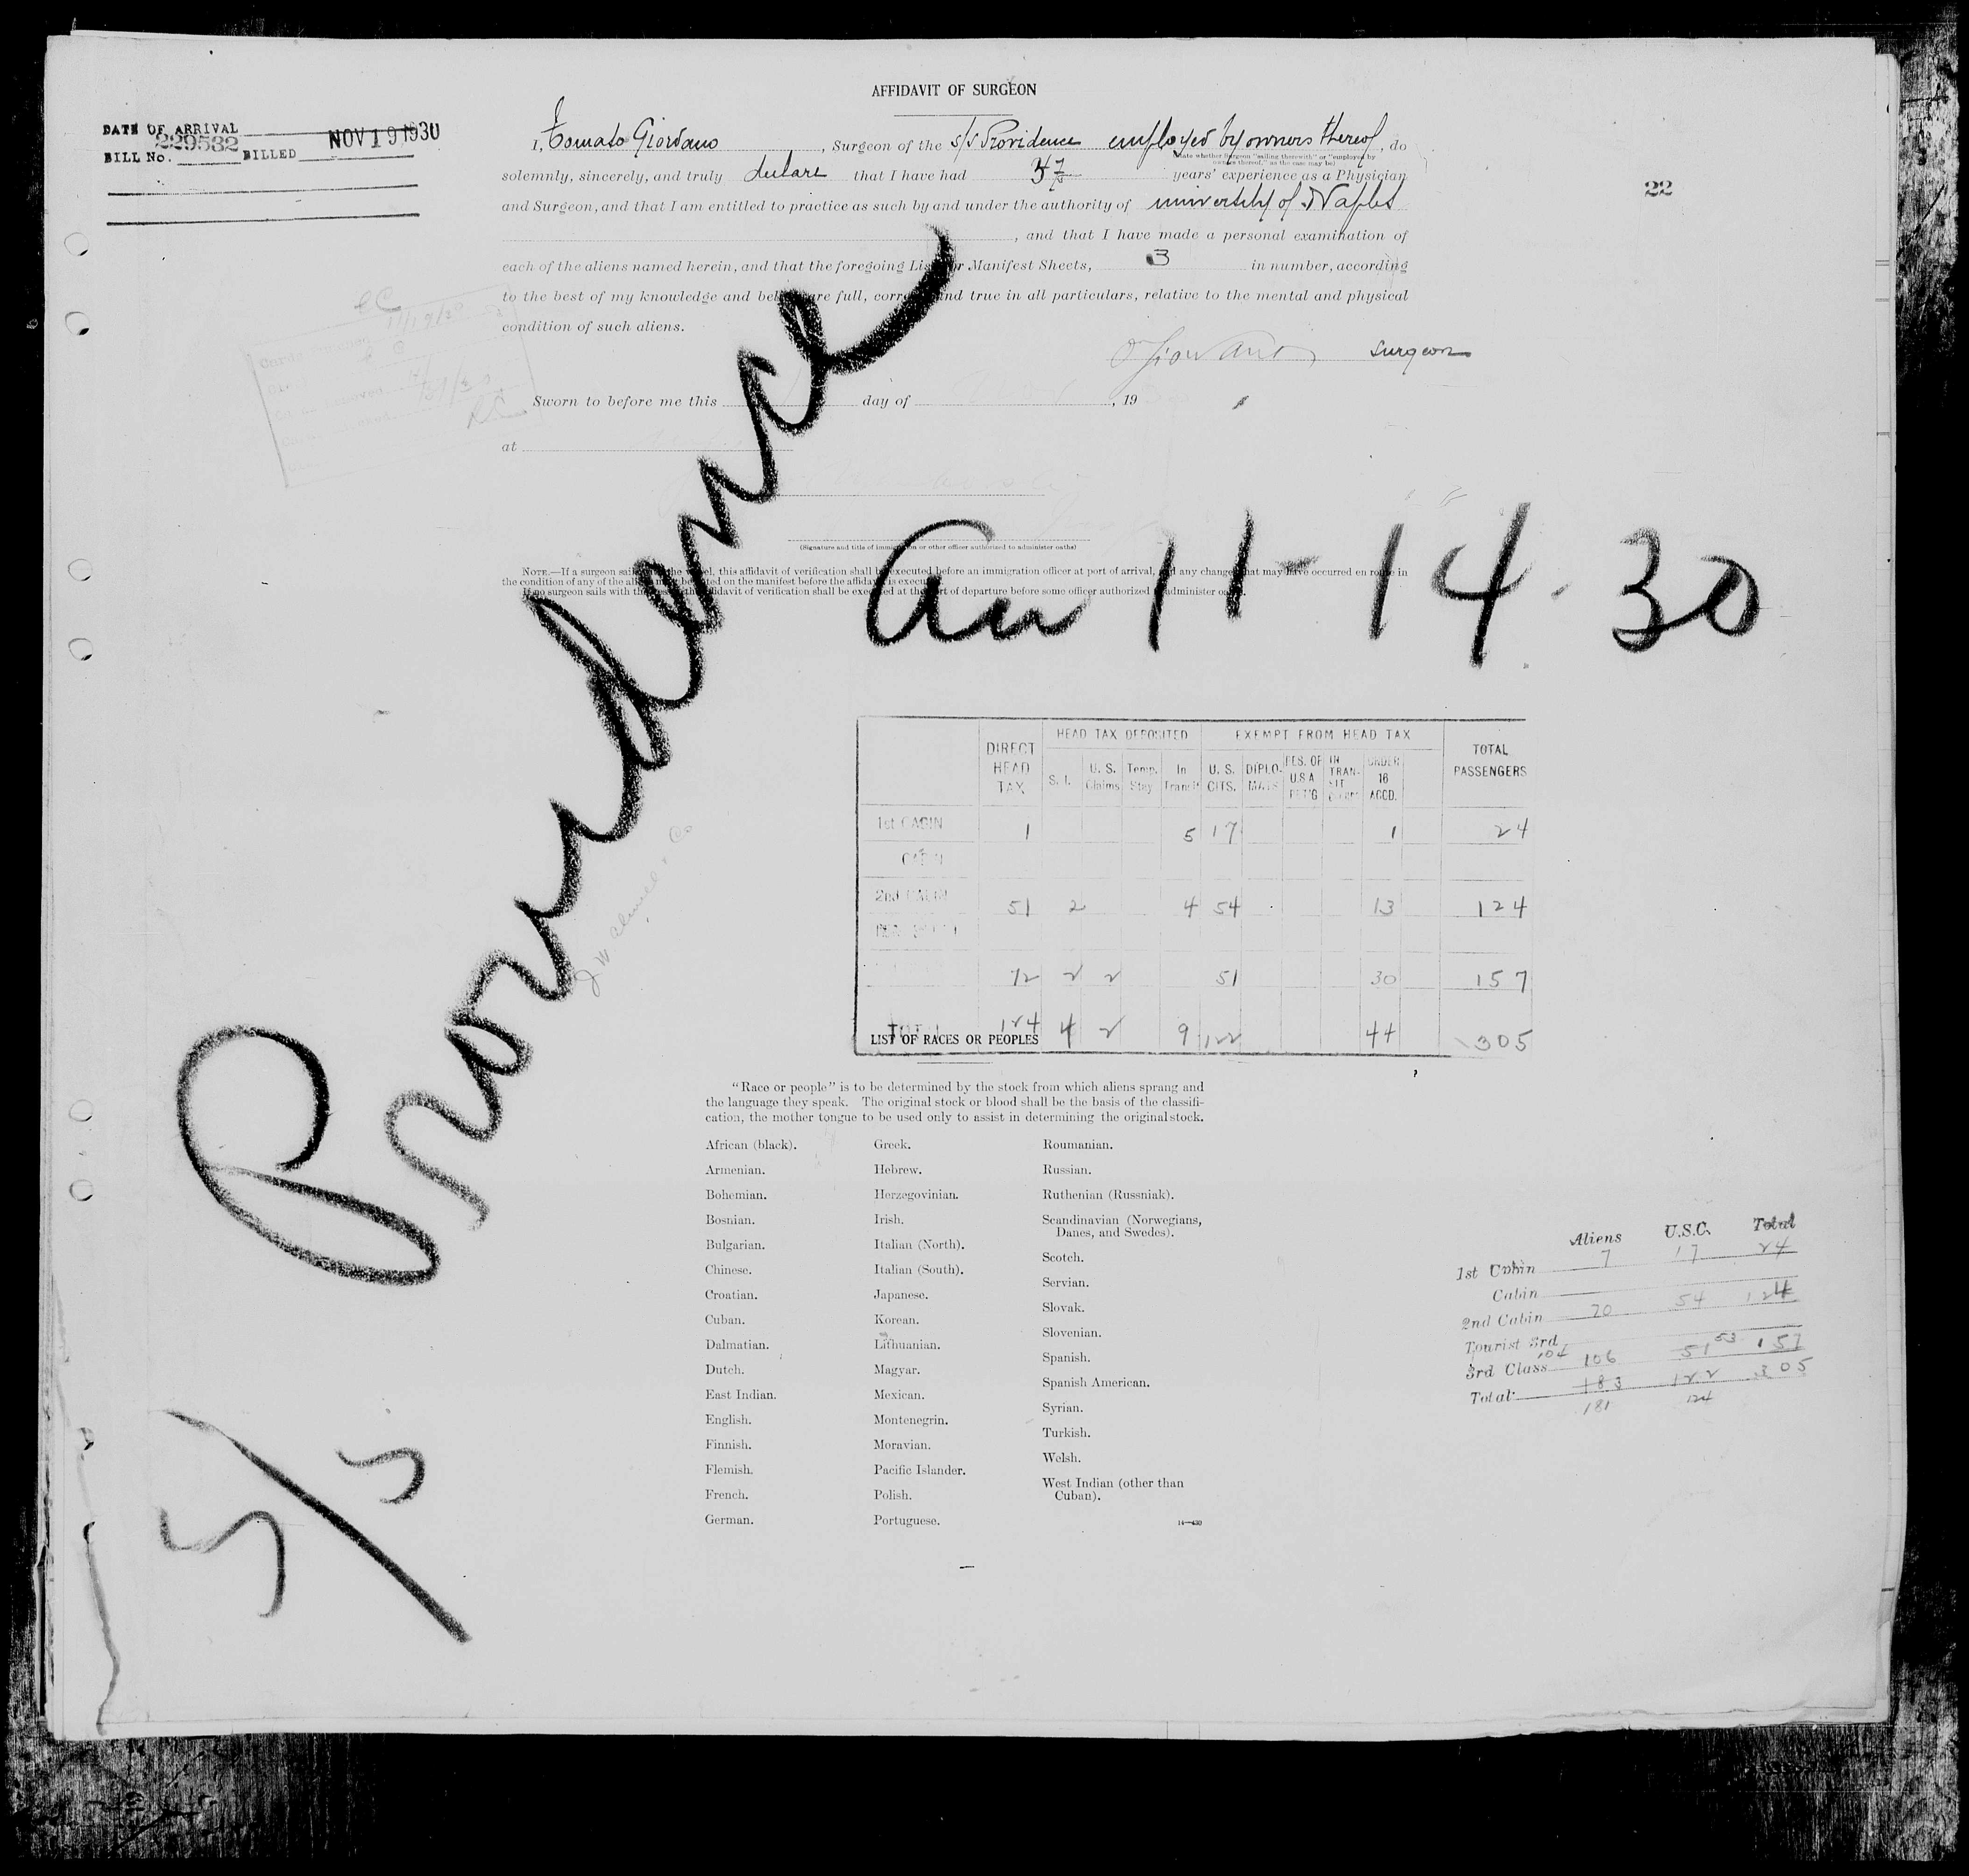 AFFIDAVIT OF SURGEON
DATE OF ARRIVAL
229532 NOV 19 1930
BILL No. BILLED
22
I, Giordano, Surgeon of the S/S Providence employed by owners thereof, do
(State whether Surgeon "sailing therewith" or "employed by
owners thereof," as the case may be)
solemnly, sincerely, and truly declare that I have had 37 years' experience as a Physician
and Surgeon, and that I am entitled to practice as such by and under the authority of university of Naples
, and that I have made a personal examination of
each of the aliens named herein, and that the foregoing List or Manifest Sheets, 3 in number, according
to the best of my knowledge and belief, are full, correct, and true in all particulars, relative to the mental and physical
condition of such aliens.
Giordano Surgeon
Sworn to before me this day of , 19
at
(Signature and title of immigration or other officer authorized to administer oaths)
NOTE.—If a surgeon sails with the vessel, this affidavit of verification shall be executed before an immigration officer at port of arrival, and any changes that may have occurred en route in
the condition of any of the aliens must be noted on the manifest before the affidavit is executed.
If no surgeon sails with the vessel, the affidavit of verification shall be executed at the port of departure before some officer authorized to administer oaths.
S/S Providence
arr 11-14-30
DIRECT HEAD TAX HEAD TAX DEPOSITED EXEMPT FROM HEAD TAX TOTAL PASSENGERS
S. I. U. S. Claims Temp. Stay In Transit U. S. CITS. DIPLO-MATS RES. OF U.S.A. RET'G IN TRAN-SIT UNDER 16 ACCD.
1st CABIN 1 5 17 1 24
CABIN
2nd CABIN 51 2 4 54 13 124
72 2 2 51 30 157
TOTAL 124 4 2 9 122 44 305
LIST OF RACES OR PEOPLES
"Race or people" is to be determined by the stock from which aliens sprang and
the language they speak. The original stock or blood shall be the basis of the classifi-
cation, the mother tongue to be used only to assist in determining the original stock.
African (black).
Armenian.
Bohemian.
Bosnian.
Bulgarian.
Chinese.
Croatian.
Cuban.
Dalmatian.
Dutch.
East Indian.
English.
Finnish.
Flemish.
French.
German.
Greek.
Hebrew.
Herzegovinian.
Irish.
Italian (North).
Italian (South).
Japanese.
Korean.
Lithuanian.
Magyar.
Mexican.
Montenegrin.
Moravian.
Pacific Islander.
Polish.
Portuguese.
Roumanian.
Russian.
Ruthenian (Russniak).
Scandinavian (Norwegians,
Danes, and Swedes).
Scotch.
Servian.
Slovak.
Slovenian.
Spanish.
Spanish American.
Syrian.
Turkish.
Welsh.
West Indian (other than
Cuban).
14—430
Aliens U.S.C. Total
1st Cabin 7 17 24
Cabin
2nd Cabin 70 54 124
Tourist 3rd
3rd Class 104 106 51 53 157
Total 183 122 305
181 124